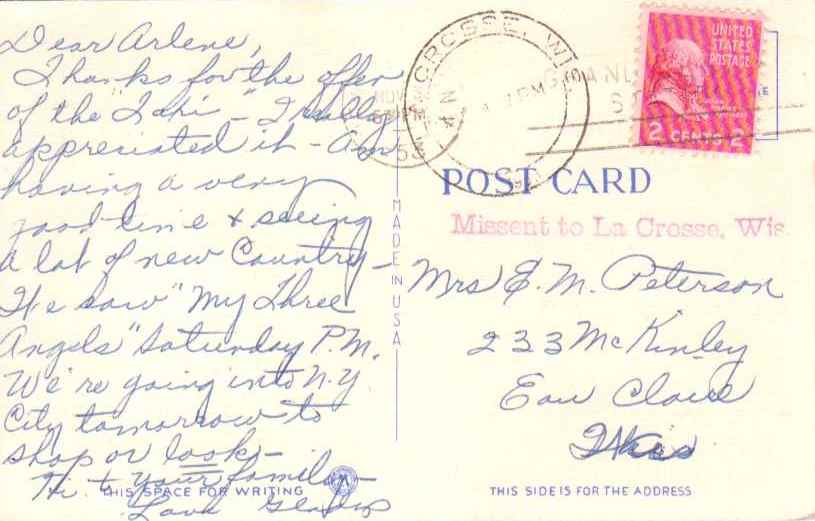 Dear Arlene,
Thanks for the offer
of the "Inki" - I really
appreciated it - Am
having a very
good time & seeing
a lot of new Country -
We saw "My Three
Angels" Saturday P.M.
We're going into N.Y.
City tomorrow to
shop or look -
Hi to your family -
Love Gladys
THIS SPACE FOR WRITING
MADE IN U.S.A.
LA CROSSE, WIS.
NOV
PM
53
UNITED
STATES
POSTAGE
2 CENTS 2
POST CARD
Missent to La Crosse, Wis.
Mrs E. M. Peterson
233 McKinley
Eau Claire
Wis
THIS SIDE IS FOR THE ADDRESS